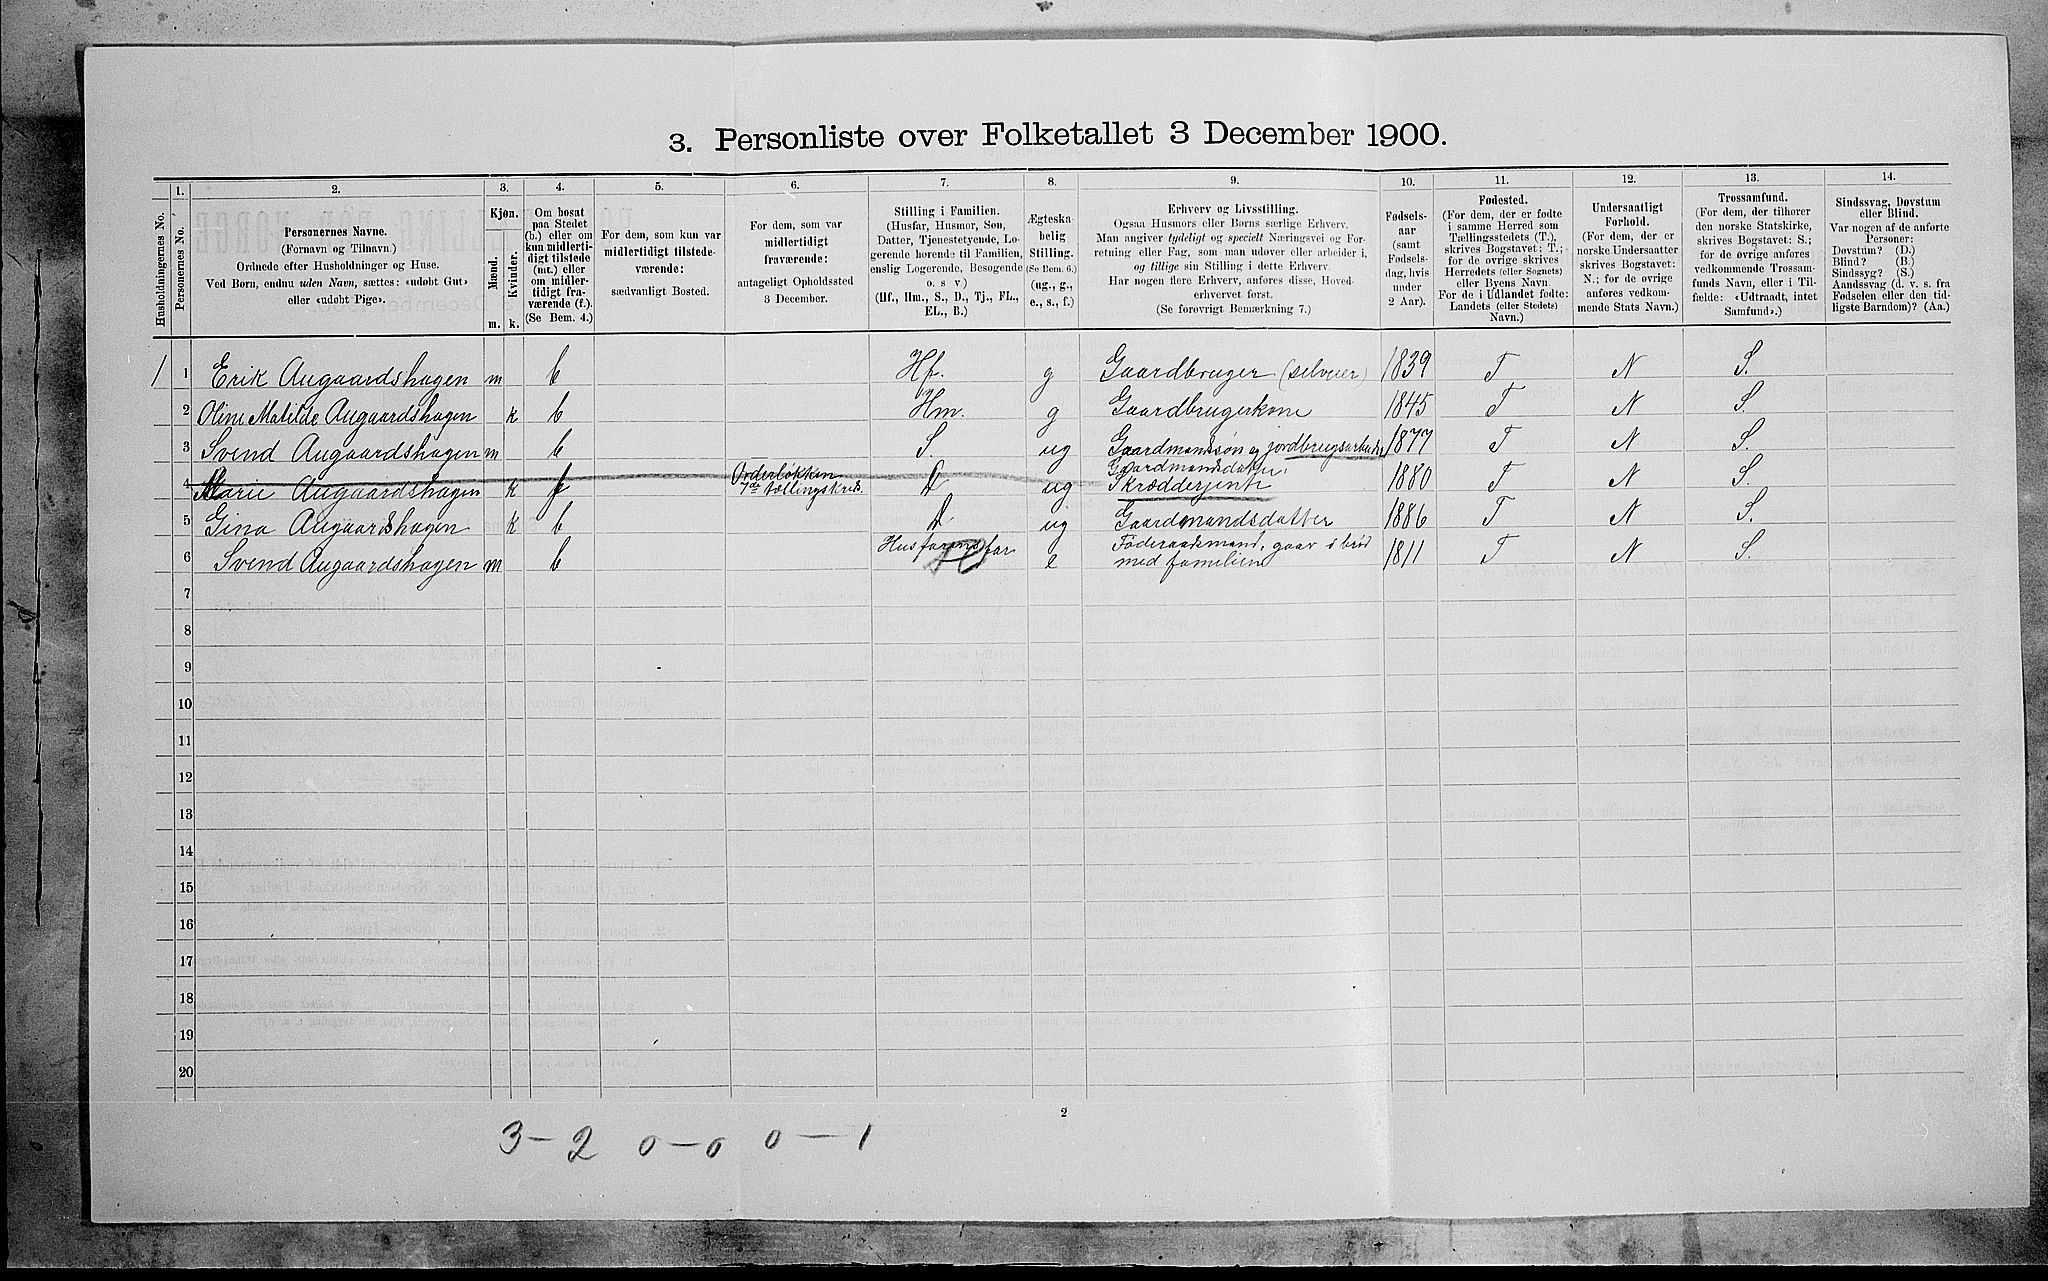 3. Personliste over Folketallet 3 December 1900.
Husholdningernes No.
1.
Personernes No.
2.
Personernes Navne.
(Fornavn og Tilnavn.)
Ordnede efter Husholdninger og Huse.
Ved Børn, endnu uden Navn, sættes: «udøbt Gut»
eller «udøbt Pige».
3.
Kjøn.
Mænd.
Kvinder.
m. k.
4.
Om bosat
paa Stedet
(b.) eller om
kun midlerti-
digt tilstede
(mt.) eller
om midler-
tidigt fra-
værende (f.).
(Se Bem. 4.)
5.
For dem, som kun var
midlertidigt tilstede-
værende:
sædvanligt Bosted.
6.
For dem, som var
midlertidigt
fraværende:
antageligt Opholdssted
3 December.
7.
Stilling i Familien.
(Husfar, Husmor, Søn,
Datter, Tjenestetyende, Lo-
gerende hørende til Familien,
enslig Logerende, Besøgende
o. s v.)
(Hf., Hm., S., D., Tj., FL.,
EL., B.)
8.
Ægteska-
belig
Stilling.
(Se Bem. 6.)
(ug., g.,
e., s., f.)
9.
Erhverv og Livsstilling.
Ogsaa Husmors eller Børns særlige Erhverv.
Man angiver tydeligt og specielt Næringsvei og For-
retning eller Fag, som man udøver eller arbeider i,
og tillige sin Stilling i dette Erhverv.
Har nogen flere Erhverv, anføres disse, Hoved-
erhvervet først.
(Se forøvrigt Bemærkning 7.)
10.
Fødsels-
aar
(samt
Fødsels-
dag, hvis
under
2 Aar).
11.
Fødested.
(For dem, der er fødte
i samme Herred som
Tællingsstedets (T.),
skrives Bogstavet: T.;
for de øvrige skrives
Herredets (eller Sognets)
eller Byens Navn.
For de i Udlandet fødte:
Landets (eller Stedets)
Navn.)
12.
Undersaatligt
Forhold.
(For dem, der er
norske Undersaatter
skrives Bogstavet:
N.; for de øvrige
anføres vedkom-
mende Stats Navn.)
13.
Trossamfund.
(For dem, der tilhører
den norske Statskirke,
skrives Bogstavet: S.;
for de øvrige anføres
vedkommende Trossam-
funds Navn, eller i Til-
fælde: «Udtraadt, intet
Samfund».)
14.
Sindssvag, Døvstum
eller Blind.
Var nogen af de anførte
Personer:
Døvstum? (D.)
Blind? (B.)
Sindssyg? (S.)
Aandssvag (d. v. s. fra
Fødselen eller den tid-
ligste Barndom)? (Aa.)
1 1 Erik Augaardshagen m b Hf. g Gaardbruger (selveier) 1839 T N S.
2 Oline Matilde Augaardshagen k b Hm. g Gaardbrugerkone 1845 T N S.
3 Svend Augaardshagen m b S. ug Gaardmandsøn og jordbrugsarbeider 1877 T N S.
4 Marie Augaardshagen k f
7de tællingskreds. D ug Gaardmandsdatter,
Skrædderjente 1880 T N S.
5 Gina Augaardshagen k b D ug Gaardmandsdatter 1886 T N S.
6 Svend Augaardshagen m b Husfarens far e Føderaadsmand, gaar i brød
med familien 1811 T N S.
7
8
9
10
11
12
13
14
15
16
17
18
19
20
2
3 - 2 0 - 0 0 - 1